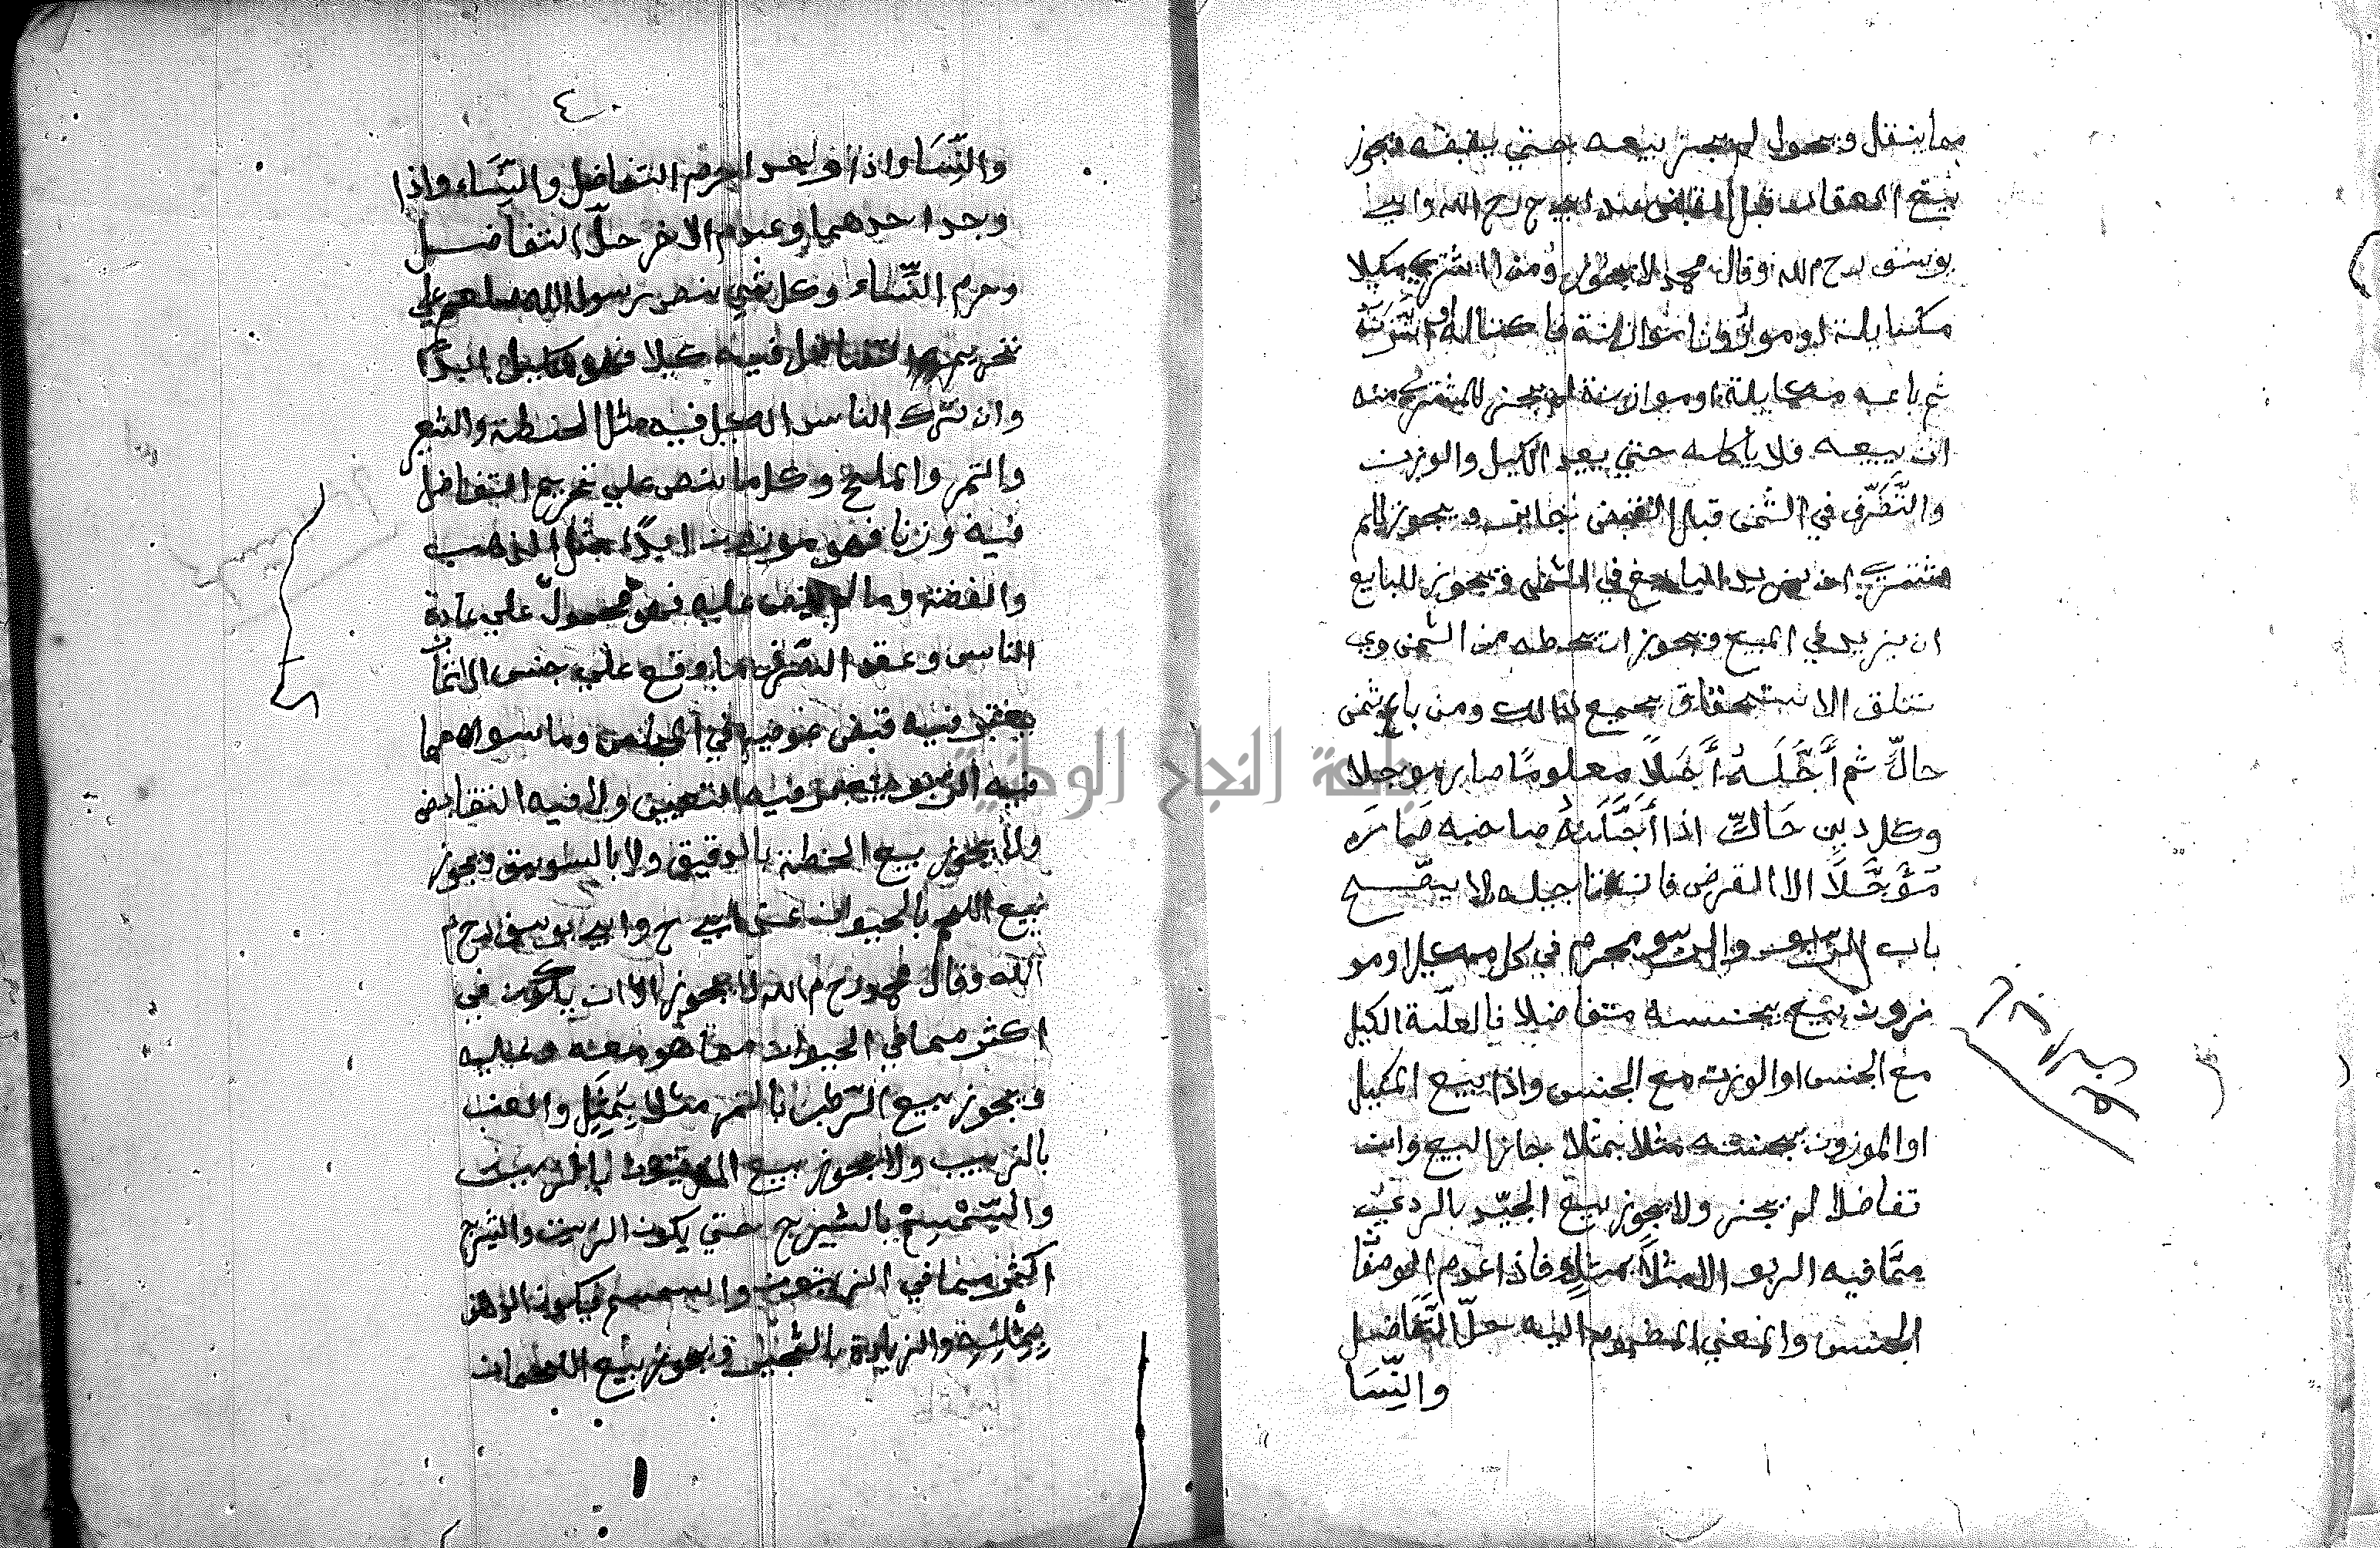 مما ينقل ويحول لم يجز بيعه حتي يقبضه فيجوز
بيع العقار قبل القبض عند ابي ح رح الله وابي
يوسف رح م الله وقال محمد لا يجوز ومن اشتري مكيلا
مكايلة او موزونا موازنة فاكتاله او اتزنه
ثم باعه مكايلة او موازنة لم يجز للمشتري منه
ان يبيعه فلا يأكله حتي يعيد الكيل والوزن
والتصرف في الثمن قبل القبض جايز ويجوز للم
مشتري ان يزيد البايع في الثمن ويجوز للبايع
ان يزيد في المبيع ويجوز ان يحطه من الثمن وي
تتلق الاستحقاق بجميع ذالك ومن باع ثمن
حالّ ثم أجّله أجلاً معلومًا صار موجلا
وكل دين حالّ اذا أجّله صاحبه صار
مؤجّلاً الا القرض فان تاجيله لا يصّح
باب الربو والربو محرم في كل مكيل او مو
زون بيع بجنسه متفاضلا فالعلّة الكيل
مع الجنس او الوزن مع الجنس واذا بيع المكيل
او الموزون بجنسه مثلا بمثلا جاز البيع وان
تفاضلا لم يجز ولا يجوز بيع الجيّد بالردي
ممّا فيه الربو الا مثلاً بمثل وفاذا عدم الوصفا
الجنس والمعني المضموم اليه حلّ التّفاضل
والنّسَا
٤
والنّسَا واذا وجدا حرم التفاضل والنّسَاء واذا
وجد احدهما وعدم الاخر حلّ التفاضل
وحرم النّساء وكل شي نص رسول الله صلعم علي
تحريم التفاضل فيه كيلا فهو مكيل ابدًا
وان ترك الناس الكيل فيه مثل الحنطة والشعير
والتمر والملح وكل ما نص علي تحريم التفاضل
فيه وزنا فهو موزون ابدًا مثل الذهب
والفضة وما لم ينص عليه فهو محمولٌ علي عادة
الناس وعقد الصّرف ما وقع علي جنس الاثمان
يعتبر فيه قبض عوضيه في المجلس وما سواه مما
فيه الربو يعتبر فيه التعيين ولا فيه التقابض
ولا يجوز بيع الحنطة بالدقيق ولا بالسويق ويجوز
بيع اللحم بالحيوان عند ابي ح وابي يوسف رح م
الله وقال محمد رح م الله لا يجوز الا ان يكون في
اكثر مما في الحيوان مما هو معه وعليه
ويجوز بيع الرّطب بالتمر مثلا بِمَثِلِ والعنب
بالزبيب ولا يجوز بيع الزيتون بالزيت
والسّمْسِمْ بالشيرج حتي يكون الزيت والشيرج
اكثر مما في الزيتون والسمسم فيكون الدهن
بِمِثْلِهِ والزيادة بالثجير ويجوز بيع اللحمان
جامعة النجاح الوطنية